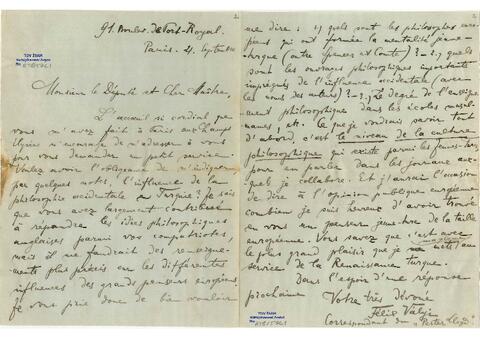 91. Boulev. de Port-Royal
Paris. 21. Septembre
TDV İSAM
Kütüphanesi Arşivi
No
Monsieur le Député et Cher Maître,
L'accueil si cordial que
vous m'avez fait à Paris aux Champs
Elysées m'encourage de m'adresser à vous
pour vous demander un petit service.
Voulez avoir l'obligeance de m'indiquer
par quelques notes, l'influence de la
philosophie occidentale en Turquie? Je sais
que vous avez largement contribué
à répandre les idées philosophiques
anglaises parmi vos compatriotes,
mais il me faudrait des renseigne-
ments plus précis sur les différentes
influences des grands penseurs européens.
Je vous prie donc de bien vouloir
2
me dire: 1) quels sont les philosophes euro-
péens qui ont formé la mentalité jeune-
turque (outre Spencer et Comte)? – 2) quels
sont les ouvrages philosophiques importants
imprégnés de l'influence occidentale (avec
les noms des auteurs)? – 3) Le degré de l'enseigne-
ment philosophique dans les écoles musul-
manes, etc. Ce que je voudrais savoir tout
d'abord, c'est le niveau de la culture
philosophique qui existe parmi les Jeunes-Turcs
pour en parler dans les journaux aux-
quels je collabore. Et j'aurai l'occasion
de dire à l'opinion publique européenne
combien je suis heureux d'avoir trouvé
en vous un penseur jeune-turc de la taille
européenne. Vous savez que c'est avec
le plus grand plaisir que je me mets au
service de la Renaissance turque.
Dans l'espoir d'une réponse
prochaine
Votre très dévoué
Félix Valyi
Correspondant du „Pester Lloyd"
TDV İSAM
Kütüphanesi Arşivi
No